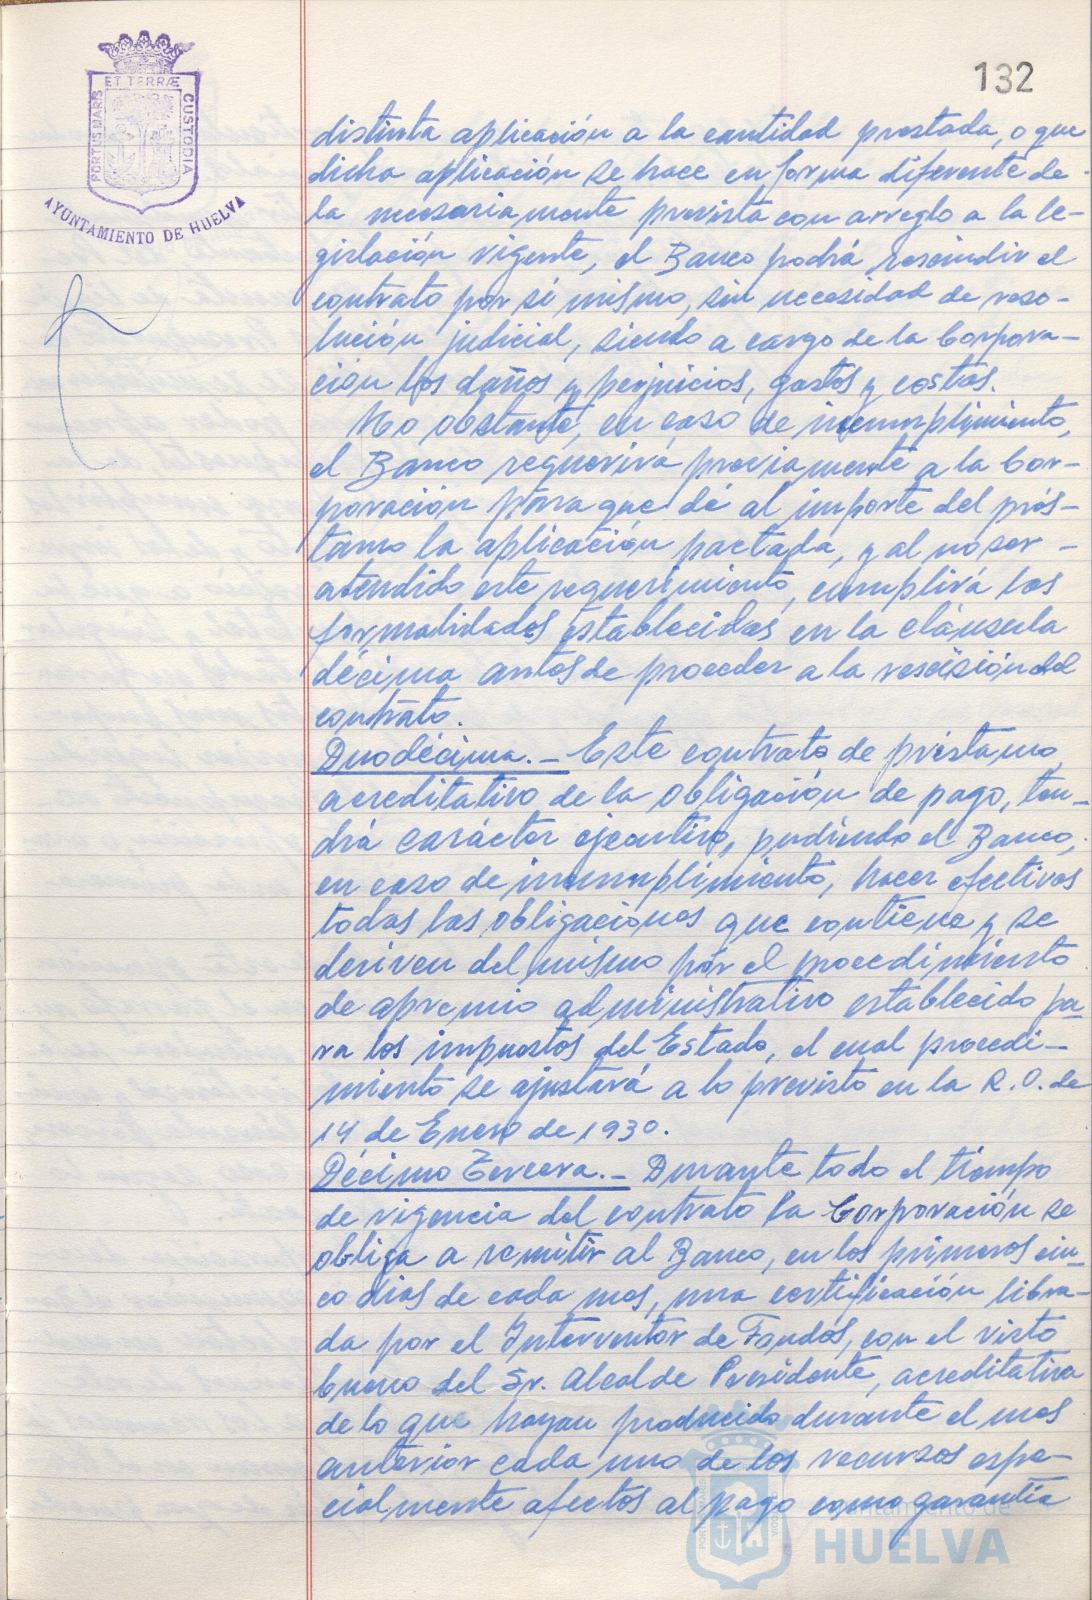 132
ET TERRÆ
PORTUS MARIS
CUSTODIA
AYUNTAMIENTO DE HUELVA
distinta aplicación a la cantidad prestada, o que
dicha aplicación se hace en forma diferente de
la necesariamente prevista con arreglo a la le-
gislación vigente, el Banco podrá rescindir el
contrato por si mismo, sin necesidad de reso-
lución judicial, siendo a cargo de la Corpora-
ción los daños y perjuicios, gastos y costas.
No obstante, en caso de incumplimiento,
el Banco requerirá previamente a la Cor-
poración para que dé al importe del prés-
tamo la aplicación pactada, y al no ser -
atendido este requerimiento, cumplirá las
formalidades establecidas en la cláusula
décima antes de proceder a la rescisión del
contrato.
Duodécima.- Este contrato de préstamo,
acreditativo de la obligación de pago, ten-
drá carácter ejecutivo, pudiendo el Banco,
en caso de incumplimiento, hacer efectivas
todas las obligaciones que contiene y se
deriven del mismo por el procedimiento
de apremio administrativo establecido pa-
ra los impuestos del Estado, el cual procedi-
miento se ajustará a lo previsto en la R.O. de
14 de Enero de 1930.
Décimo Tercera.- Durante todo el tiempo
de vigencia del contrato la Corporación se
obliga a remitir al Banco, en los primeros cin-
co dias de cada mes, una certificación libra-
da por el Interventor de Fondos, con el visto
bueno del Sr. Alcalde Presidente, acreditativa
de lo que hayan producido durante el mes
anterior cada uno de los recursos espe-
cialmente afectos al pago como garantía
Ayuntamiento de
HUELVA